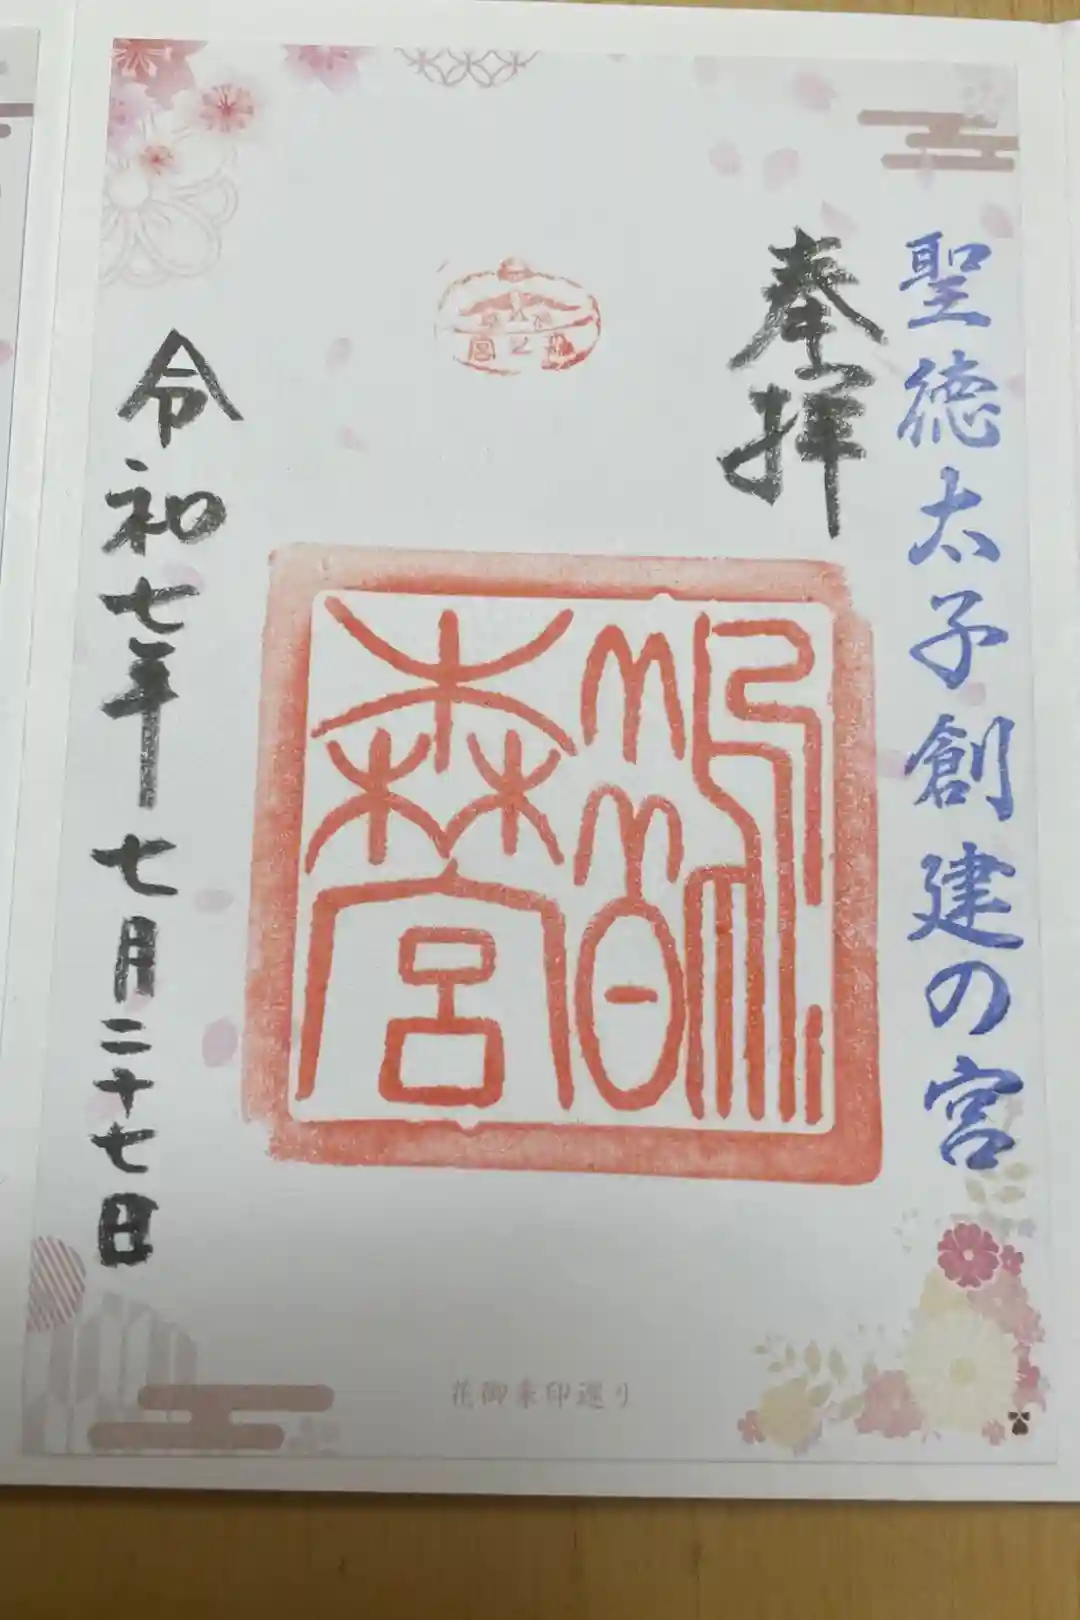 聖徳太子創建の宮
奉拝
鵲森宮
令和七年七月二十七日
花御朱印巡り